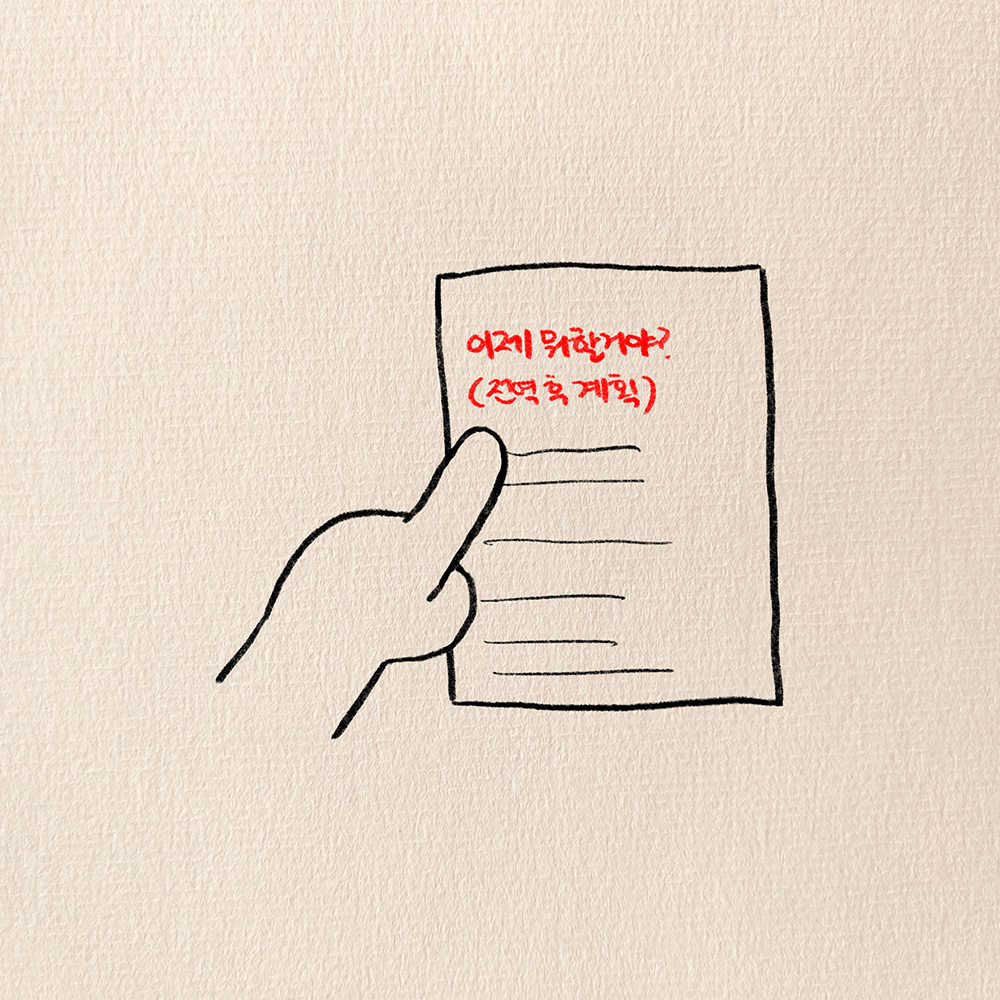 이제 뭐할거야?
(전역 후 계획)